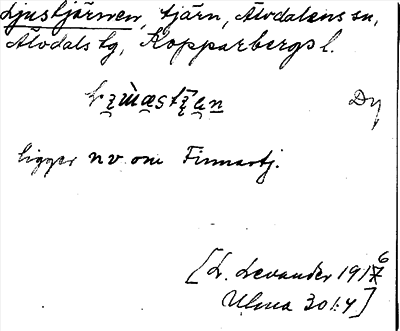 Ljustjärnen, tjärn, Älvdalens sn,
Älvdals tg, Kopparbergs l.
Dy
ligger nv om Finnartj.
[L. Levander 1916
Ulma 301:4]